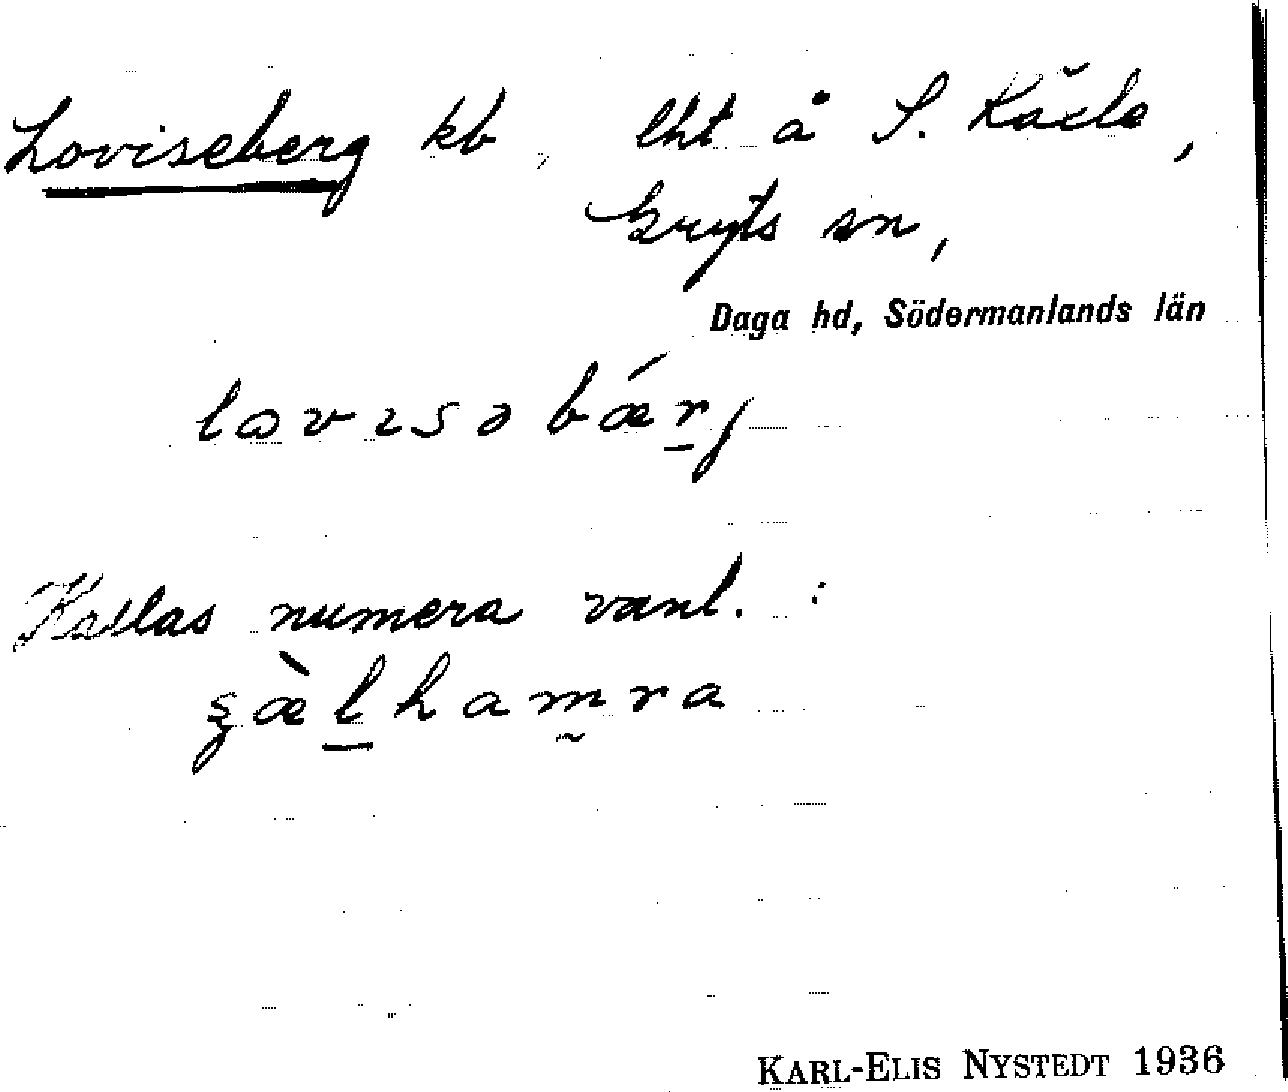 Loviseberg kb, lht å S. Kåela,
Gryts sn,
Daga hd, Södermanlands län
lovɪsəbǽrj
Kallas numera vanl. :
ʂæ̀lhamra
KARL-ELIS NYSTEDT 1936